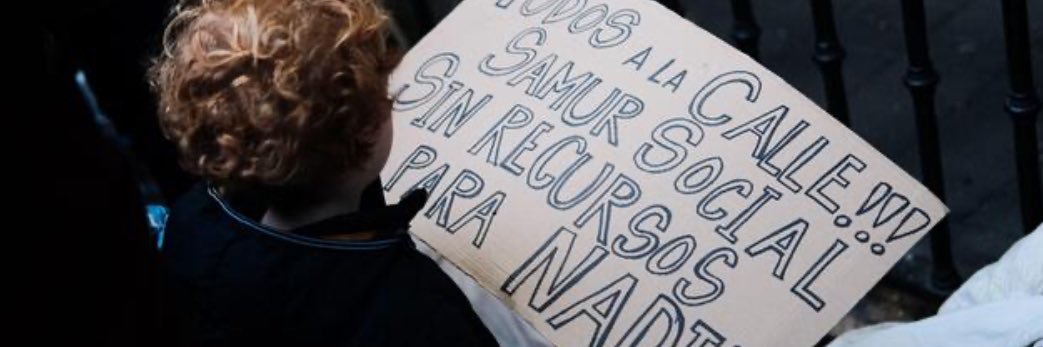 TODOS A LA CALLE...!!!
SAMUR SOCIAL
SIN RECURSOS
PARA NADI